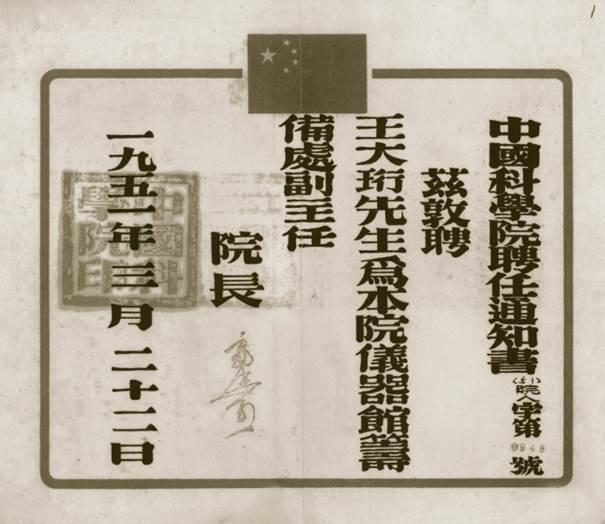 1
中國科學院聘任通知書 院人字第 號
茲敦聘
王大珩先生爲本院儀器館籌
備處副主任
院長
一九五一年三月二十二日
中國科
學院印